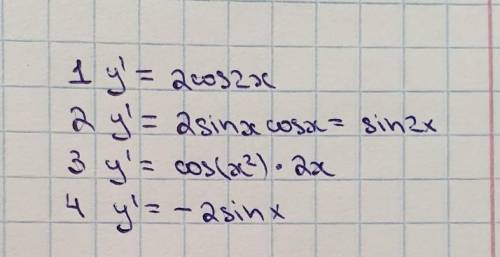 1 y' = 2cos2x
2 y' = 2sinx cosx = sin2x
3 y' = cos(x²)·2x
4 y' = -2sinx